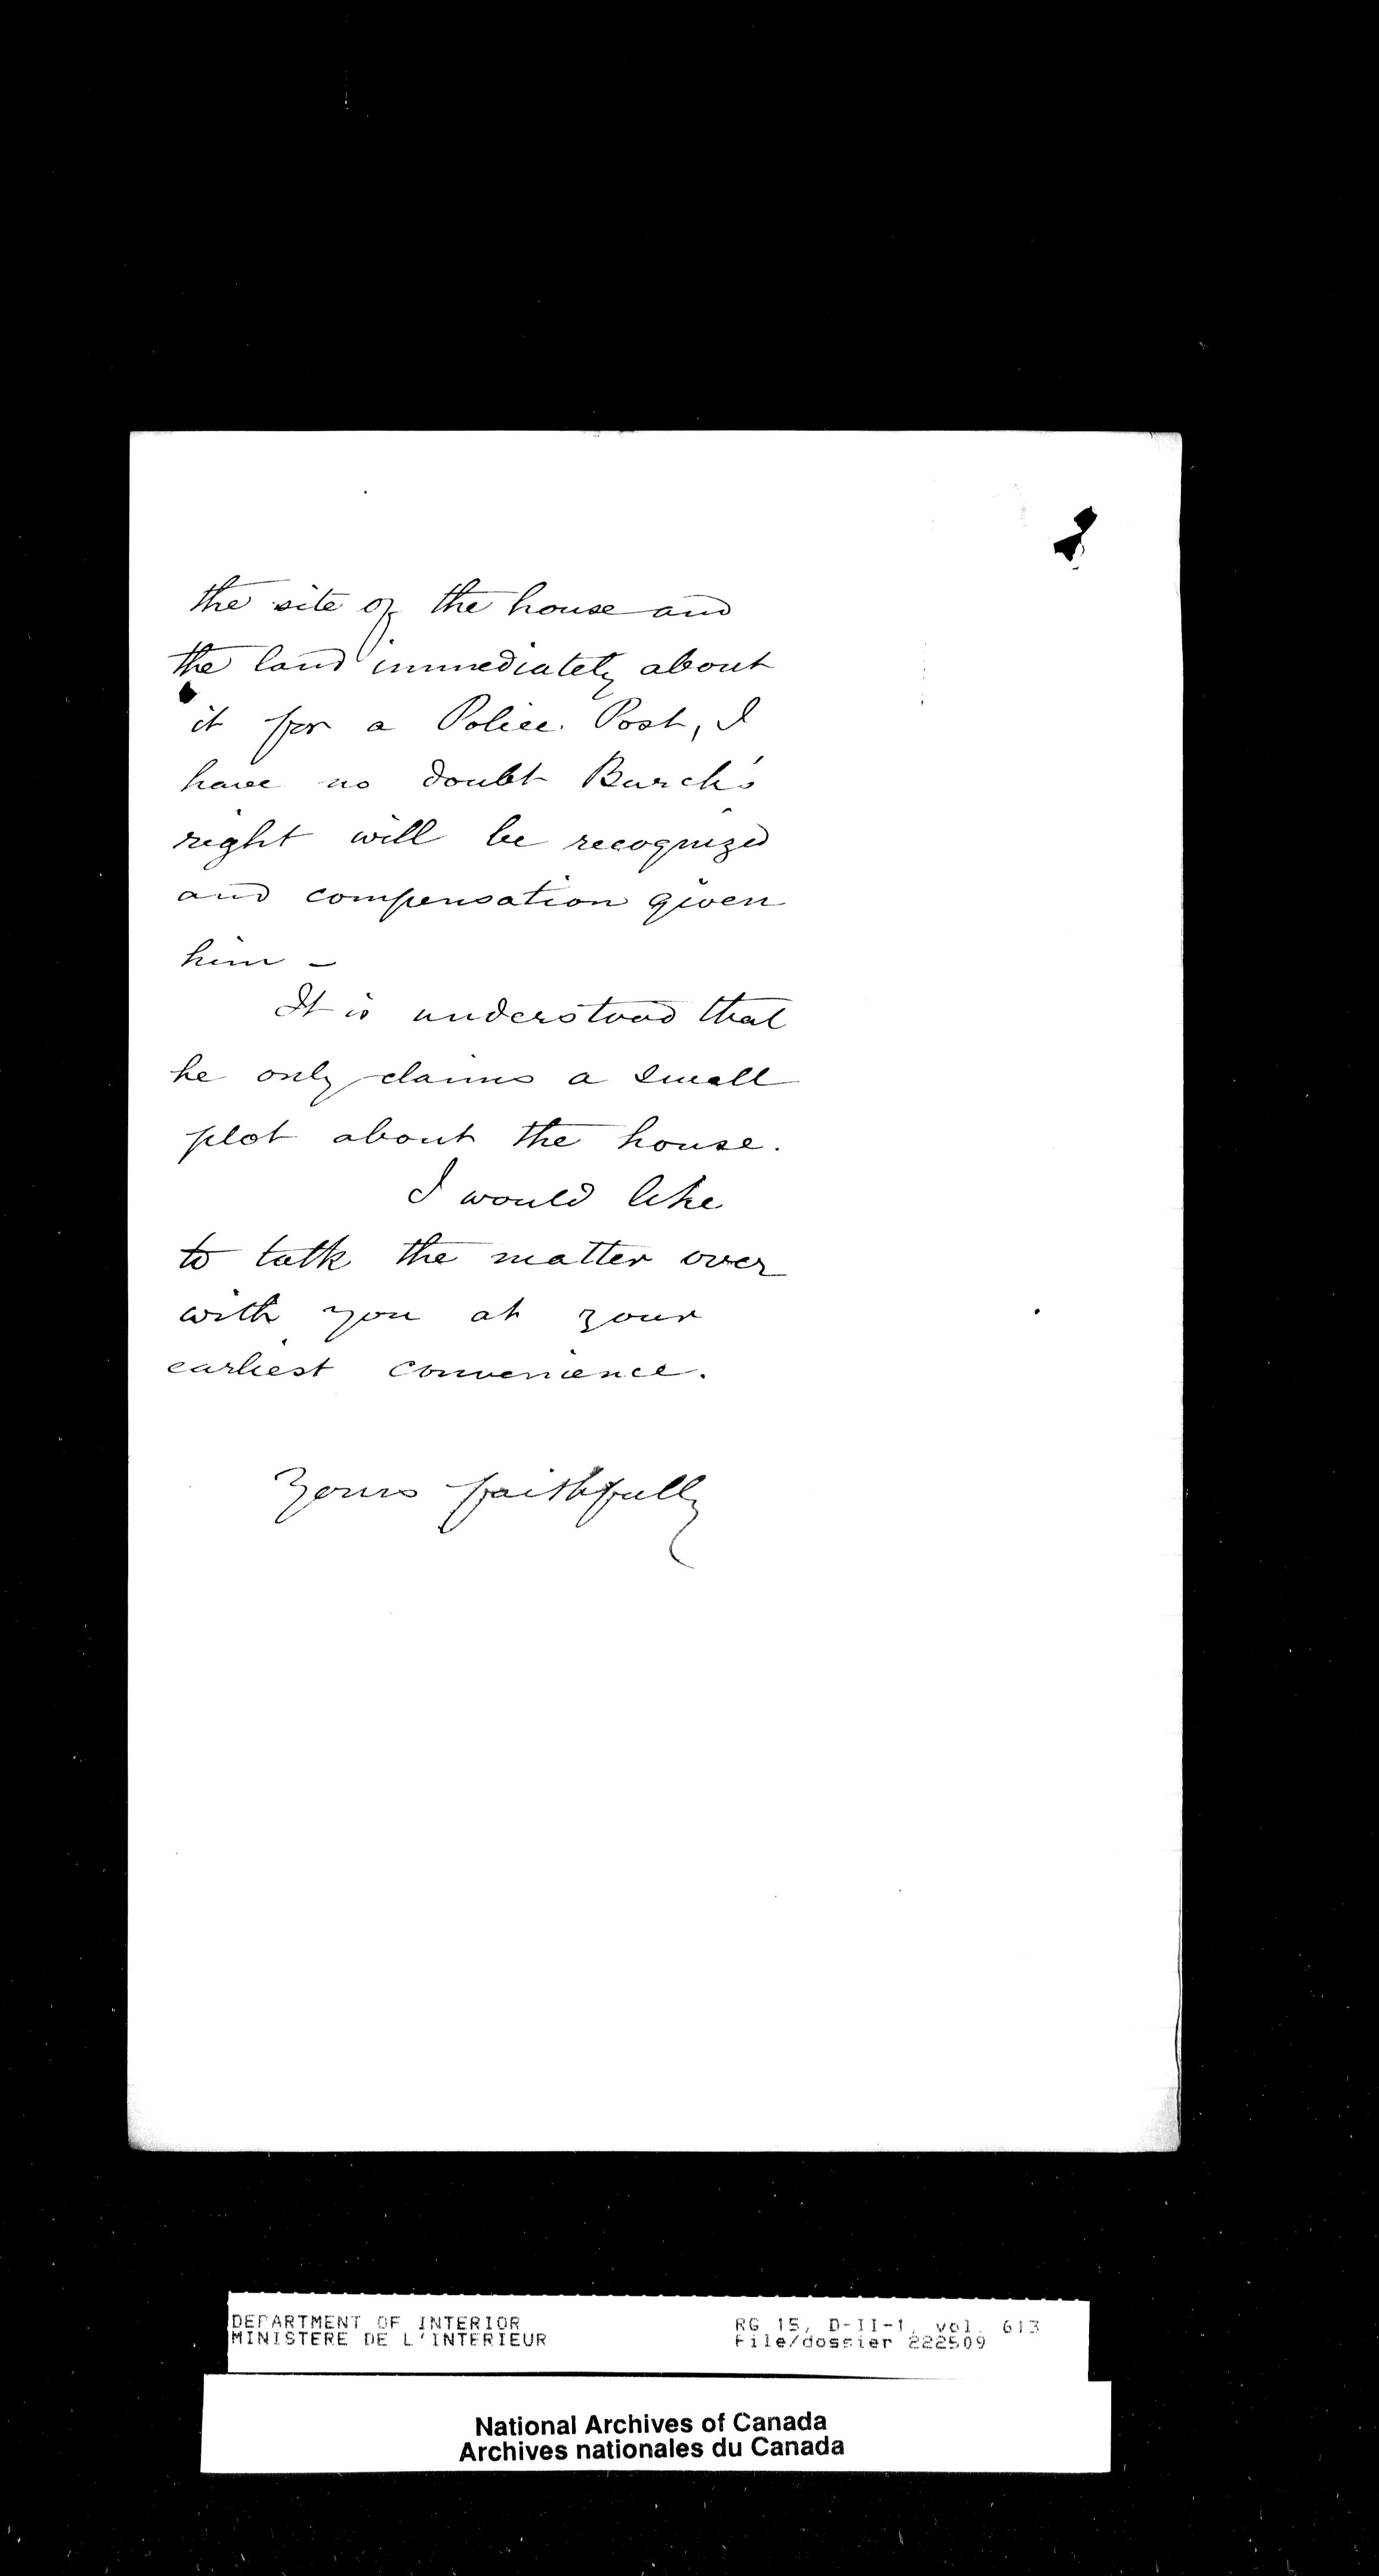 the site of the house and
the land immediately about
it for a Police Post, I
have no doubt Burch's
right will be recognized
and compensation given
him -
It is understood that
he only claims a small
plot about the house.
I would like
to talk the matter over
with you at your
earliest convenience.
Yours faithfully
DEPARTMENT OF INTERIOR RG 15, D-II-1, vol. 613
MINISTERE DE L'INTERIEUR File/dossier 222509
National Archives of Canada
Archives nationales du Canada